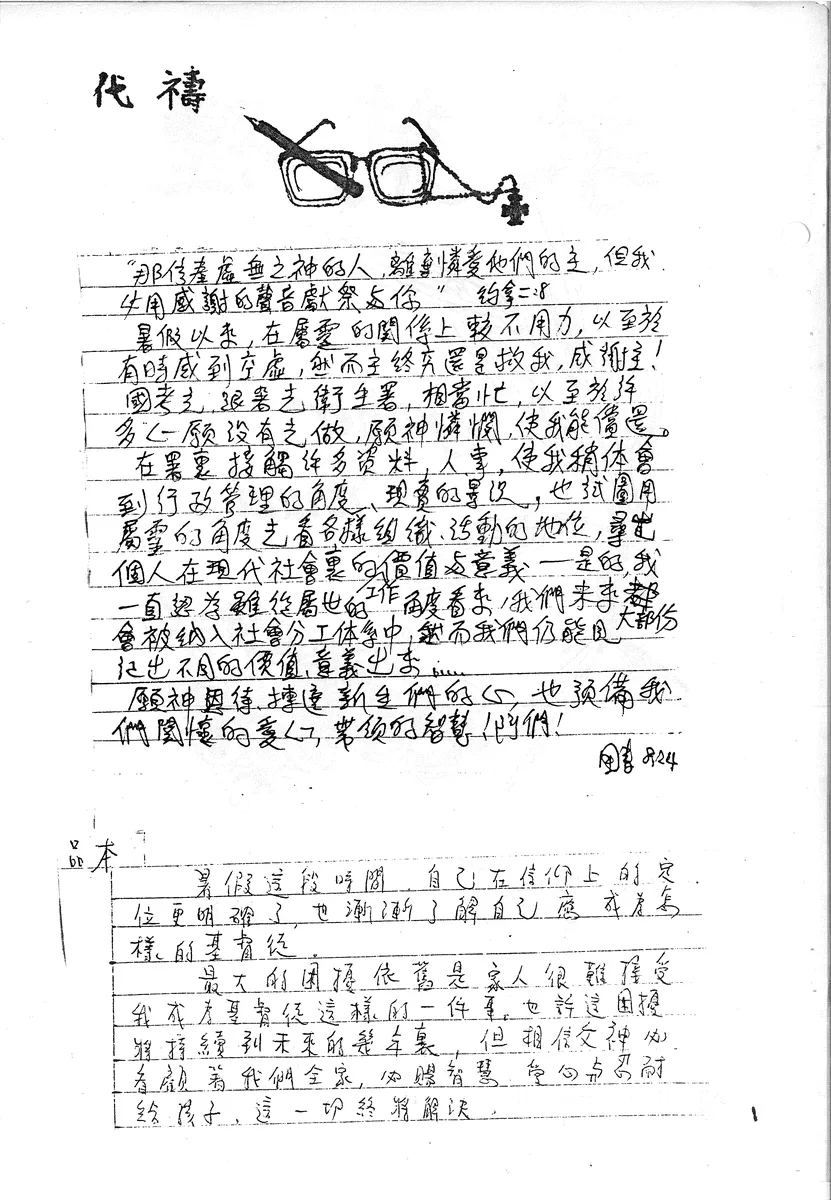 代禱
"那信奉虛無之神的人，離棄憐愛他們的主，但我
必用感謝的聲音獻祭與你" 約拿二:8
暑假以來，在屬靈的關係上較不用力，以至於
有時感到空虛，然而主終究還是救我，感謝主！
國考完，跟著去衛生署，相當忙，以至於許
多心願沒有去做，願神憐憫，使我能償還。
在署裏接觸許多資料，人事，使我稍体會
到行政管理的角度、現實的景況，也試圖用
屬靈的角度去看各樣組織、活動的地位，尋出
個人在現代社會裏的價值與意義——是的，我
一直認為雖從屬世的工作角度看來，我們未來都
會被納入社會分工体系中，然而我們仍能見大部份
記出不同的價值、意義出來……
願神恩待、揀選新生們的心，也預備我
們關懷的愛心，帶領的智慧！阿們！
8.24
品本
暑假這段時間，自己在信仰上的定
位更明確了，也漸漸了解自己應成為怎
樣的基督徒。
最大的困擾依舊是家人很難接受
我成為基督徒這樣的一件事。也許這困擾
將持續到未來的幾年裏，但相信父神必
看顧著我們全家，必賜智慧、愛心與忍耐
給孩子，這一切終將解決。
1